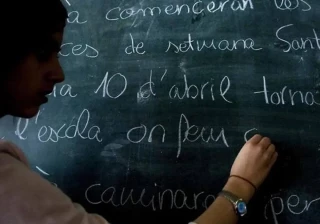 començaran les
ces de setmana Sant
10 d'abril torna
l'escola on fem
caminara per